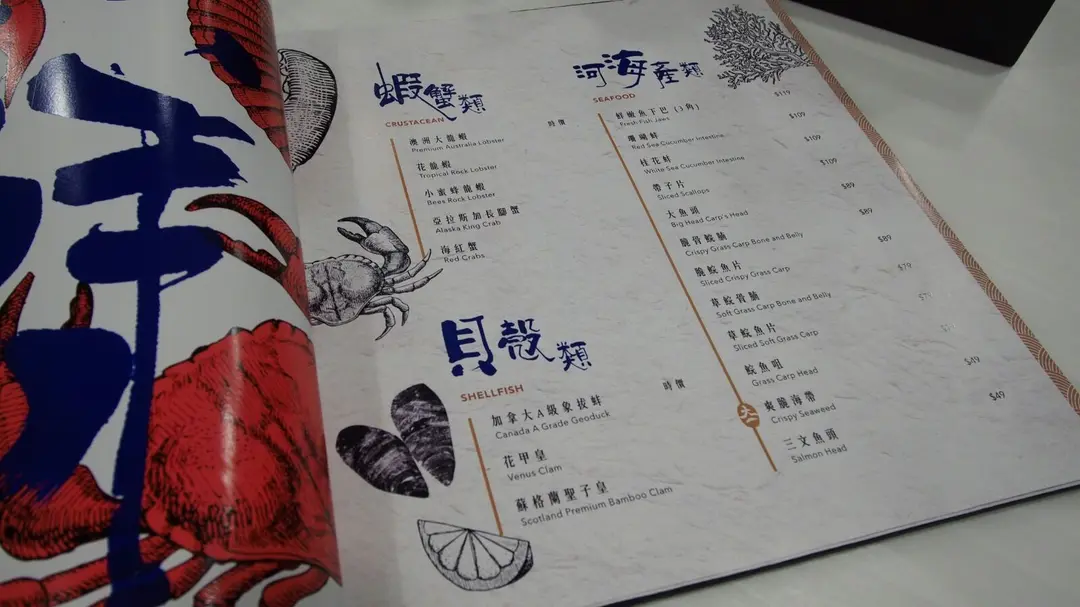 蝦蟹類
CRUSTACEAN
時價
澳洲大龍蝦
Premium Australia Lobster
花龍蝦
Tropical Rock Lobster
小蜜蜂龍蝦
Bees Rock Lobster
亞拉斯加長腳蟹
Alaska King Crab
海紅蟹
Red Crabs
貝殼類
SHELLFISH
時價
加拿大A級象拔蚌
Canada A Grade Geoduck
花甲皇
Venus Clam
蘇格蘭聖子皇
Scotland Premium Bamboo Clam
河海產類
SEAFOOD
鮮鮑魚下巴 (3角) $119
Fresh Fish Jaws
珊瑚蚌 $109
Red Sea Cucumber Intestine
桂花蚌 $109
White Sea Cucumber Intestine
帶子片 $109
Sliced Scallops
大魚頭 $89
Big Head Carp's Head
脆骨鯇腩 $89
Crispy Grass Carp Bone and Belly
脆鯇魚片 $89
Sliced Crispy Grass Carp
草鯇骨腩 $79
Soft Grass Carp Bone and Belly
草鯇魚片
Sliced Soft Grass Carp
鯇魚咀
Grass Carp Head
爽脆海帶 $49
Crispy Seaweed
三文魚頭 $49
Salmon Head